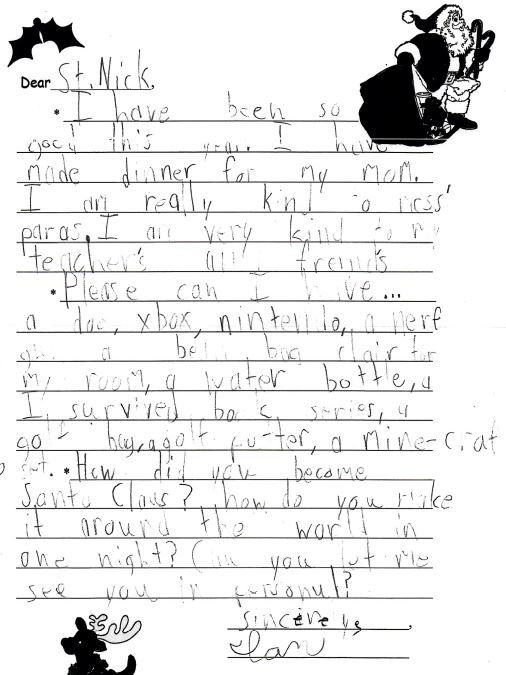 Dear St. Nick,
* I have been so
good this year. I have
made dinner for my mom.
I am really kind to
paras. I am very kind to my
teacher's all freinds
* Please can I have...
a dog, xbox, nintendo, a nerf
gun a bean bag chair for
my room, a water bottle, a
I survived book series, a
golf bag, a golf putter, a mine-crat
* How did you become
Santa Claus? how do you make
it around the world in
one night? Can you let me
see you in personal?
sincerely,
Ian